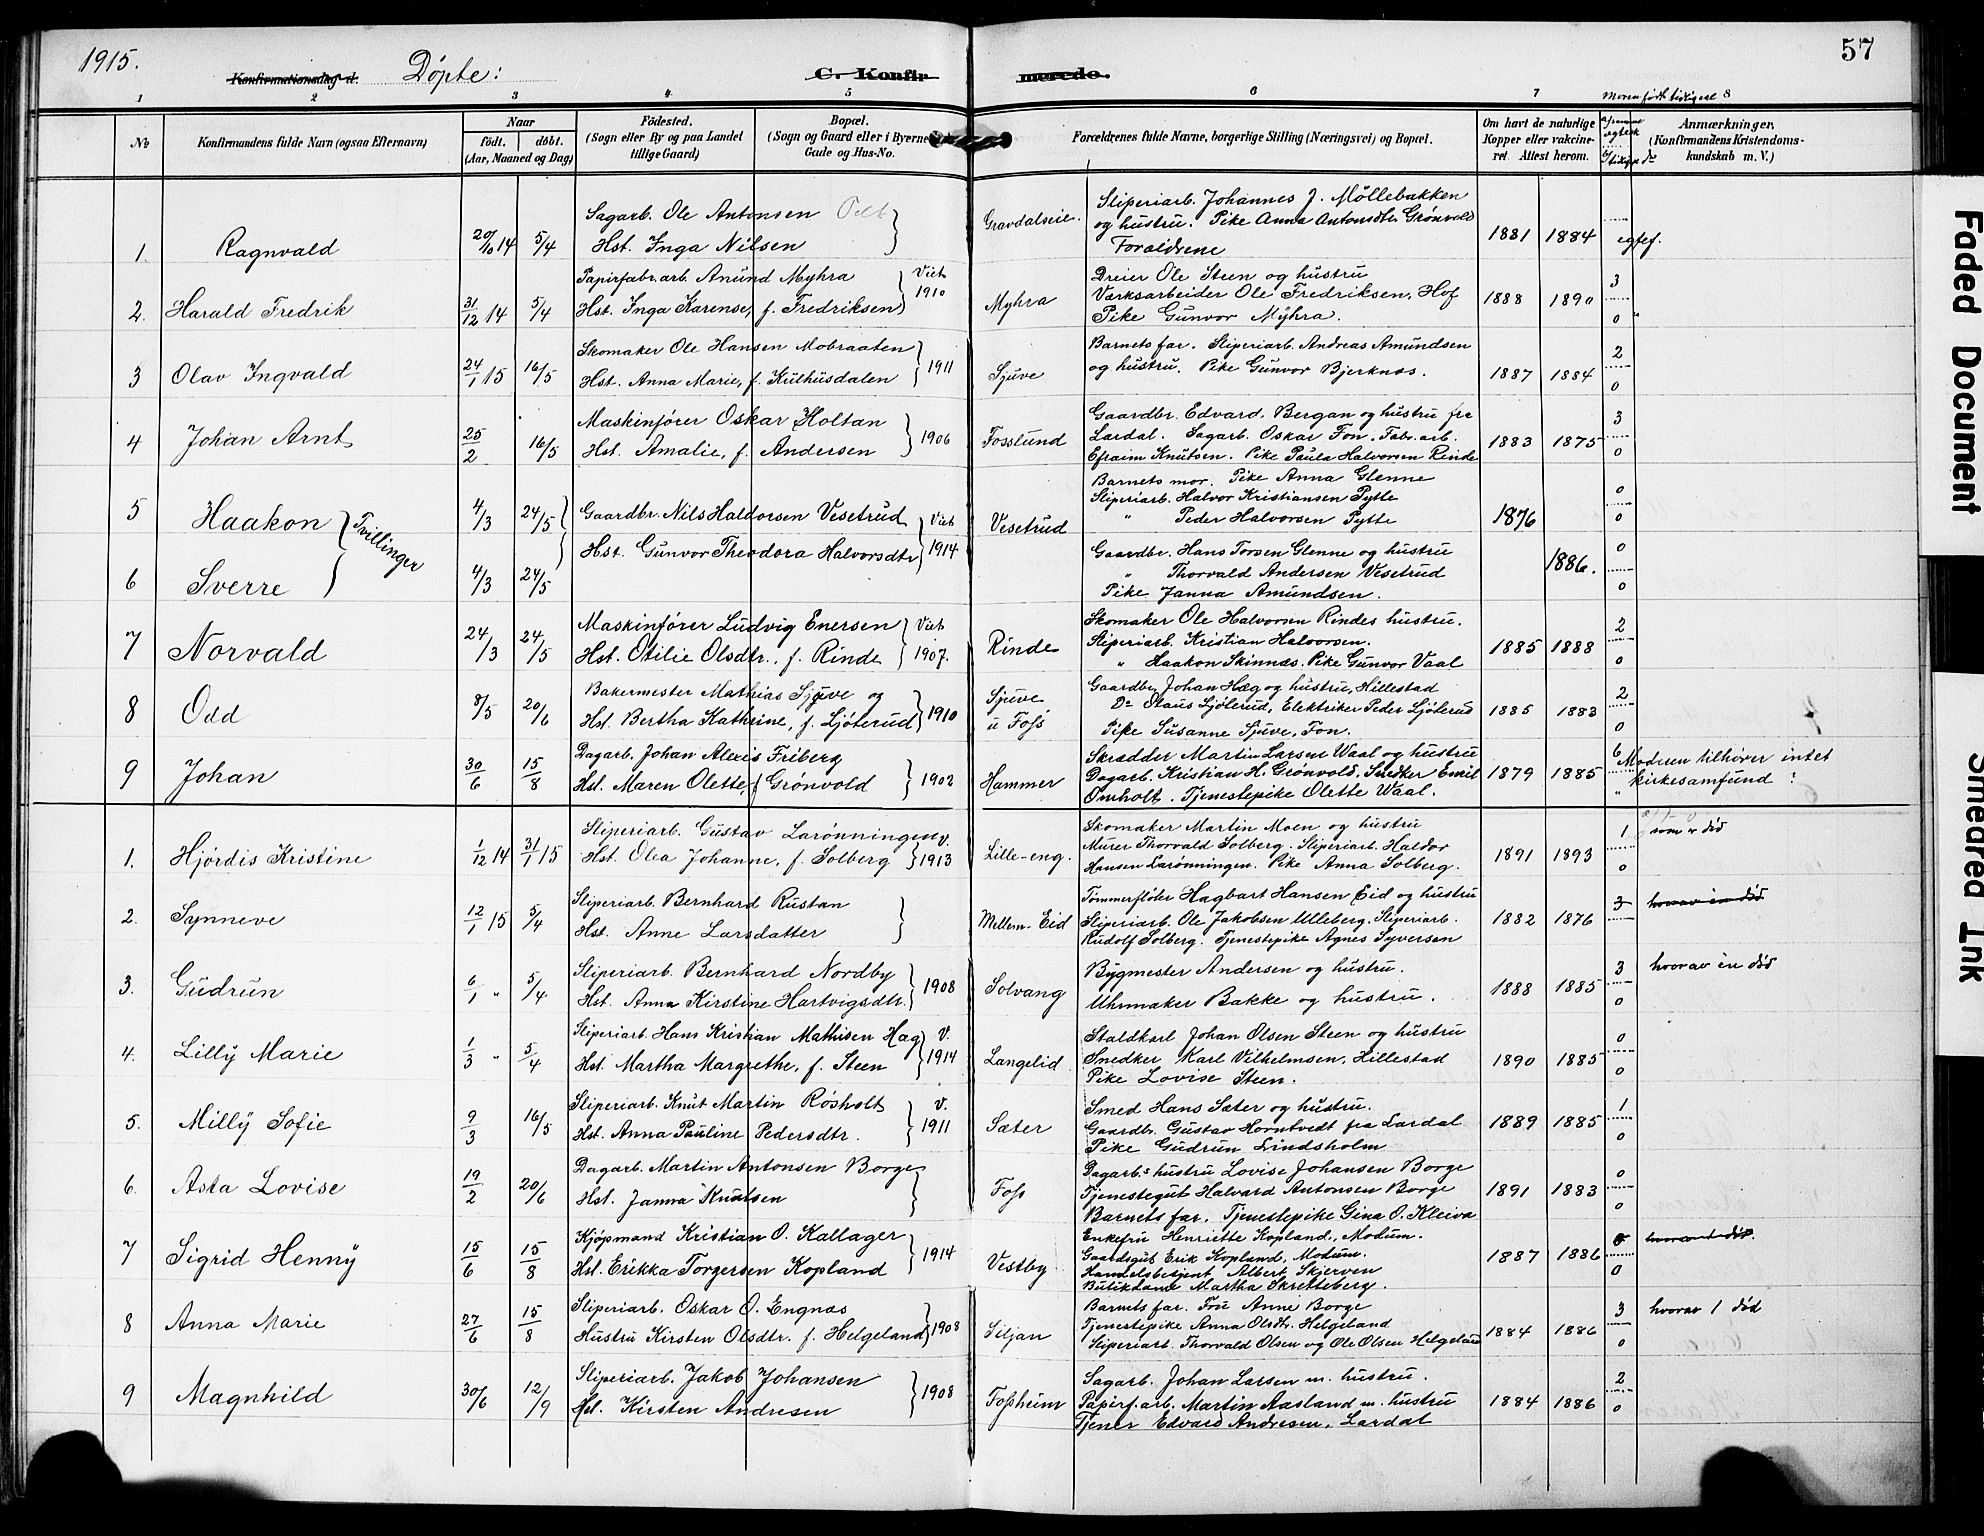 1915.
Konfirmationsdag d. Døpte:
C. Konfirmerede.
57
1 2 3 4 5 6 7 8
Moren født tidligere
No
Konfirmandens fulde Navn (ogsaa Efternavn)
Naar
födt. döbt.
(Aar, Maaned og Dag)
Födested.
(Sogn eller By og paa Landet tillige Gaard)
Bopæl.
(Sogn og Gaard eller i Byerne Gade og Hus-No.
Forældrenes fulde Navne, borgerlige Stilling (Næringsvei) og Bopæl.
Om havt de naturlige Kopper eller vakcineret. Attest herom.
Anmærkninger.
(Konfirmandens Kristendomskundskab m. V.)
1. Ragnvald 20/10 14 5/4
Sagarb. Ole Antonsen
Hst. Inga Nilsen
Gravdalseie.
Sliperiarb. Johannes J. Möllebakken
og hustru. Pike Anna Antonsdtr. Grønvold
Foraldrene
1881 1884 egtef.
2. Harald Fredrik 31/12 14 5/4
Papirfabr.arb. Anund Myhra
Hst. Inga Karense, f. Fredriksen
Viet 1910
Myhra
Dreier Ole Steen og hustru
Værksarbeider Ole Fredriksen, Hof
Pike Gunvor Myhra.
1888 1890 3 0
3 Olav Ingvald 24/1 15 16/5
Skomaker Ole Hansen Mobraaten
Hst. Anna Marie, f. Kulhusdalen
1911
Sjuve
Barnets far. Sliperiarb. Andreas Amundsen
og hustru. Pike Gunvor Bjerknæs.
1887 1884 2 0
4 Johan Arnt 25/2 16/5
Maskinfører Oskar Holtan
Hst. Amalie, f. Andersen
1906
Fosslund
Gaardbr. Edvard Bergan og hustru fra
Lardal. Sagarb. Oskar Fon. Fabr.arb.
Efraim Knutsen. Pike Paula Halvorsen Rinde
1883 1875 3 0
5 Haakon 4/3 24/5
Tvillinger
Gaardbr. Nils Haldorsen Vesetrud
Hst. Gunvor Theodora Halvorsdtr
Viet 1914
Vesetrud
Barnets mor. Pike Anna Glenne
Sliperiarb. Halvor Kristiansen Pytte
" Peder Halvorsen Pytte
1876 0 0
6 Sverre 4/3 24/5
Gaardbr. Hans Torsen Glenne og hustru
" Thorvald Andersen Vesetrud
Pike Janna Amundsen.
1886. 0 0
7 Norvald 24/3 24/5
Maskinfører Ludvig Enersen
Hst. Otilie Olsdtr., f. Rinde
Viet 1907.
Rinde
Skomaker Ole Halvorsen Rindes hustru.
Sliperiarb. Kristian Halvorsen.
" Haakon Skinnæs. Pike Gunvor Vaal
1885 1888 2 0
8 Odd 8/5 20/6
Bakermester Mathias Sjuve og
Hst. Bertha Kathrine, f. Ljøterud
1910
Sjuve
u Foss
Gaardbr. Johan Hæg og hustru, Hillestad
Do Olaus Ljøterud, Elektriker Peder Ljøterud
Pike Susanne Sjuve, Fon.
1885 1883 2 0
9 Johan 30/6 15/8
Dagarb. Johan Alexis Friberg
Hst. Maren Olette, f Grønvold
1902
Hammer
Skrædder Martin Larsen Waal og hustru
Dagarb. Kristian H. Grønvold, Snedker Emil
Omholt. Tjenestepike Olette Waal.
1879 1885 6 "
Moderen tilhører intet
kirkesamfund ?
1. Hjørdis Kristine 1/12 14 31/1 15
Sliperiarb. Gustav Larønningen
Hst. Olea Johanne, f. Solberg
v. 1913
Lille-eng.
Skomaker Martin Moen og hustru
Murer Thorvald Solberg. Sliperiarb. Haldor
Hansen Larønningen. Pike Anna Solberg.
1891 1893 1 0
som er død
2. Synneve 12/1 15 5/4
Sliperiarb. Bernhard Rustan
Hst. Anne Larsdatter
Mellem-Eid
Tømmerfløter Hagbart Hansen Eid og hustru
Sliperiarb. Ole Jakobsen Ulleberg. Sliperiarb.
Rudolf Solberg. Tjenestepike Agnes Syversen
1882 1876 3
hvorav én død
3. Gudrun 6/1 " 5/4
Sliperiarb. Bernhard Nordby
Hst. Anna Kirstine Hartvigsdtr.
1908
Solvang
Bygmester Andersen og hustru.
Uhrmaker Bakke og hustru.
1888 1885 3 0
hvorav én død
4. Lilly Marie 1/3 " 5/4
Sliperiarb. Hans Kristian Mathisen Hæg
Hst. Martha Margrethe, f. Steen
V. 1914
Langelid
Staldkarl Johan Olsen Steen og hustru
Snedker Karl Vilhelmsen, Hillestad
Pike Lovise Steen.
1890 1885 0 0
5. Milly Sofie 9/3 16/5
Sliperiarb. Knut Martin Røsholt
Hst. Anna Pauline Pedersdtr.
V. 1911
Sæter
Smed Hans Sæter og hustru.
Gaardbr. Gustav Horntvedt fra Lardal
Pike Gudrun Lindsholm
1889 1885 1 0
6. Asta Lovise 19/2 20/6
Dagarb. Martin Antonsen Borge
Hst. Janna Knutsen
Foss
Dagarb.s hustru Lovise Johansen Borge
Tjenestegut Halvard Antonsen Borge
Barnets far. Tjenestepike Gina O. Kleiva
1891 1883 0 0
7 Sigrid Henny 15/6 15/8
Kjøpmand Kristian O. Kallager
Hst. Erikka Torgersen Kopland
1914
Vestby
Enkefru Henriette Kopland, Modum.
Gaardsgut Erik Kopland, Modum.
Handelsbetjent Albert Skjerven
Butikdame Martha Skretteberg.
1887 1886 0 0
8 Anna Marie 27/6 15/8
Sliperiarb. Oskar O. Engnæs
Hustru Kirsten Olsdtr. f. Helgeland
1908
Siljan
Barnets far. Fru Anne Borge
Tjenestepike Anna Olsdtr. Helgeland
Sliperiarb. Thorvald Olsen og Ole Olsen Helgeland
1884 1886 3 0
hvorav 1 død
9 Magnhild 30/6 12/9
Sliperiarb. Jakob Johansen
Hst. Kirsten Andresen
1908
Fossheim
Sagarb. Johan Larsen m. hustru.
Papirf.arb. Martin Aasland m. hustru
Tjener Edvard Andresen, Lardal
1884 1886 2 0
Faded Document
Smeared Ink